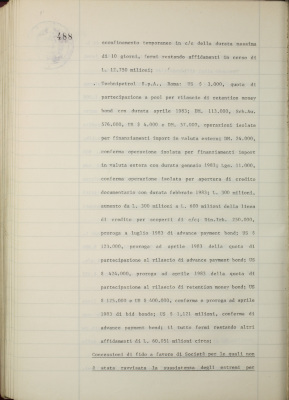 488
sconfinamento temporaneo in c/c della durata massima
di 10 giorni, fermi restando affidamenti in corso di
L. 12.750 milioni;
. Technipetrol S.p.A., Roma: US $ 3.800, quota di
partecipazione a pool per rilascio di retention money
bond con durata aprile 1983; DM. 113.000, Sch.Au.
576.000, US $ 4.000 e DM. 57.000, operazioni isolate
per finanziamenti import in valuta estera; DM. 54.000,
conferma operazione isolata per finanziamenti import
in valuta estera con durata gennaio 1983; Lgs. 15.000,
conferma operazione isolata per apertura di credito
documentario con durata febbraio 1983; L. 300 milioni,
aumento da L. 300 milioni a L. 600 milioni della linea
di credito per scoperti di c/c; 720.000,
proroga a luglio 1983 di advance payment bond; US $
124.000, proroga ad aprile 1983 della quota di
partecipazione al rilascio di advance payment bond; US
$ 424.000, proroga ad aprile 1983 della quota di
partecipazione al rilascio di retention money bond;
US $ 125.000 e US $ 600.000, conferma e proroga ad aprile
1983 di bid bonds; US $ 1,121 milioni, conferma di
advance payment bond; il tutto fermi restando altri
affidamenti di L. milioni circa;
Concessioni di fido a favore di Società per le quali non
è stata ravvisata la sussistenza degli estremi per